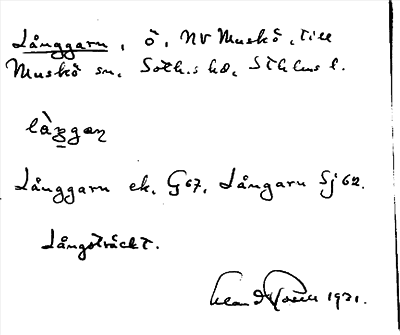 Långgarn, ö, NV Muskö, till
Muskö sn, Soth.s hd, Sthlms l.
Långgarn ek. G 67, Långarn Sj 62.
Långsträckt.
1921.